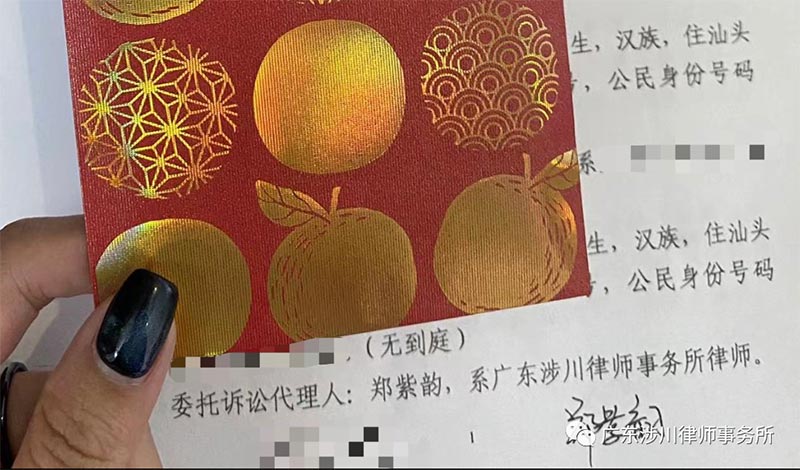 生，汉族，住汕头
号，公民身份号码
系
生，汉族，住汕头
号，公民身份号码
，（无到庭）
委托诉讼代理人：郑紫韵，系广东涉川律师事务所律师。
郑紫韵
广东涉川律师事务所